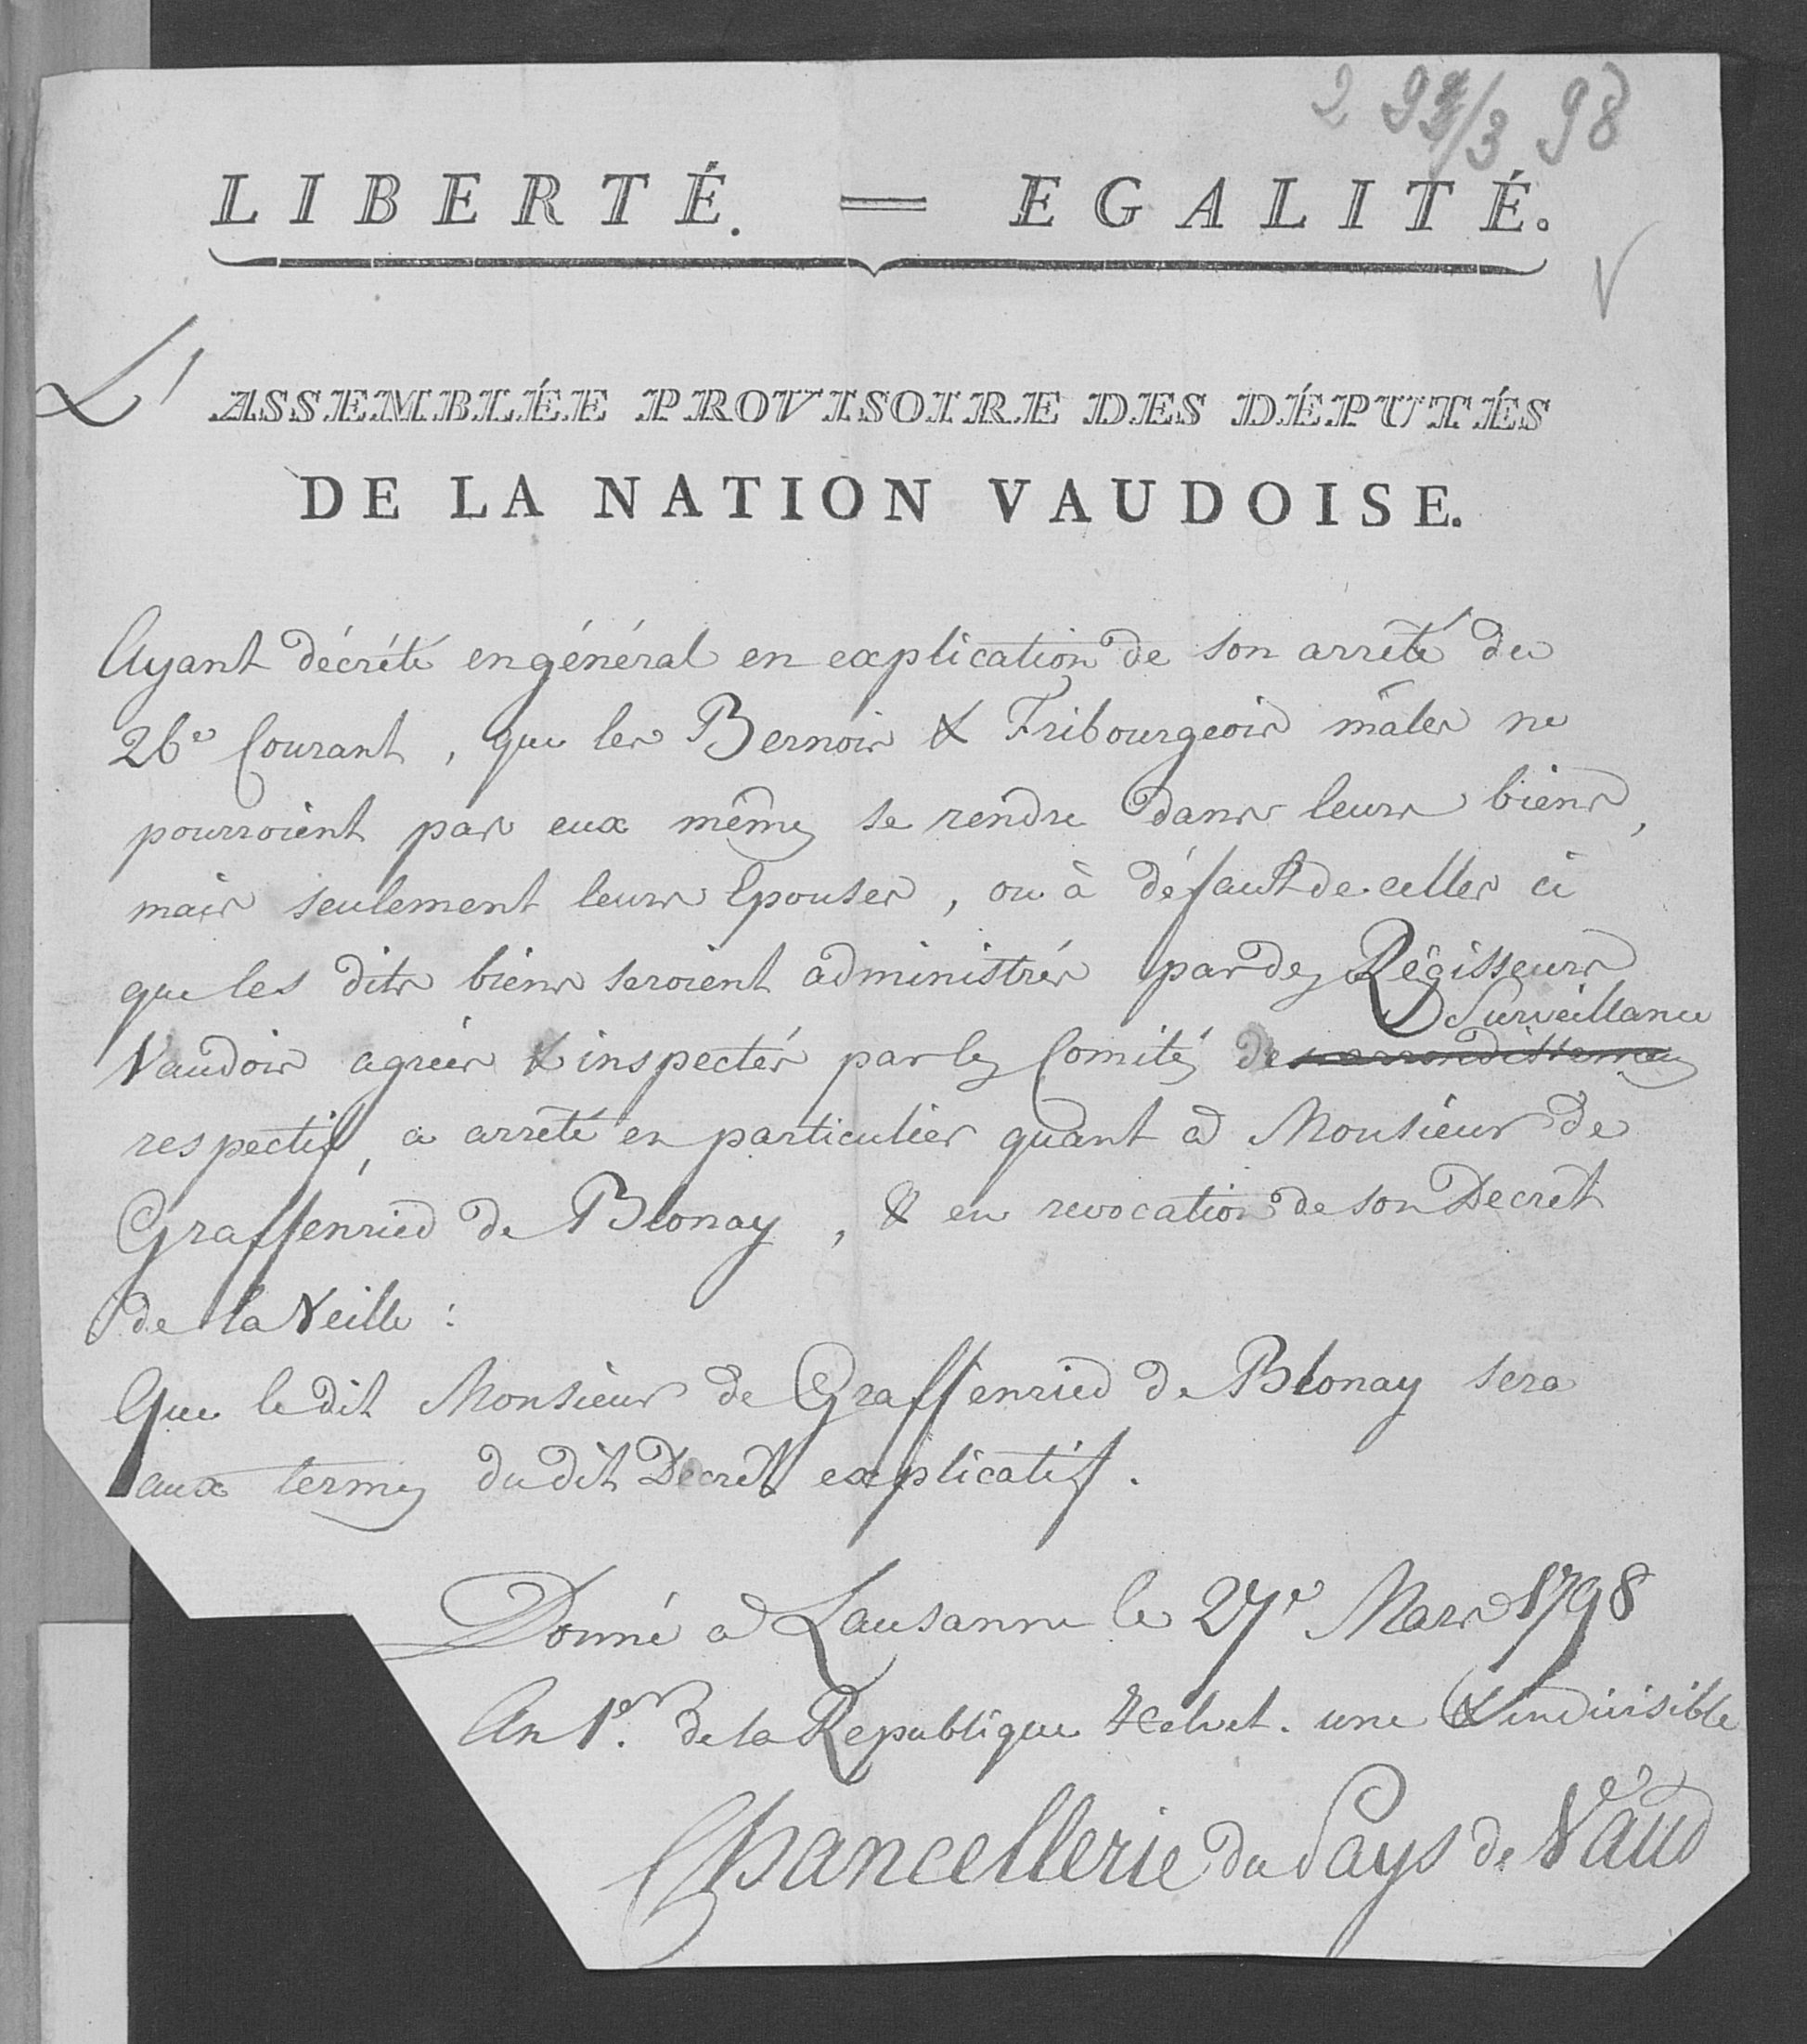 LIBERTÉ. = EGALITÉ.
L'ASSEMBLÉE PROVISOIRE DES DÉPUTÉS
DE LA NATION VAUDOISE.
Ayant décrété en général en explication de son arrêté du
26e Courant, que les Bernois & Fribourgeois mâles ne
pourroient par eux mêmes se rendre dans leurs biens,
mais seulement leurs Epouses, ou à défaut de celles ci
que les dits biens seroient administrés par des Régisseurs
Surveillance
Vaudois agréés & inspectés par les Comités des arrondissemens
respectif, a arrêté en particulier quant à Monsieur de
Graffenried de Blonay, & en revocation de son Decret
de la Veille :
Que le dit Monsieur de Graffenried de Blonay sera
aux termes du dit Decret explicatif.
Donné à Lausanne le 27e Mars 1798
An 1er. de la Republique Helvet. une & indivisible
Chancellerie du Pays de Vaud